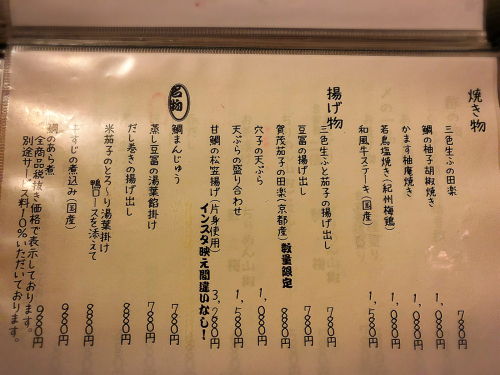 焼き物
三色生ふの田楽 780円
鯛の柚子胡椒焼き 1,080円
かます柚庵焼き 1,080円
若鳥塩焼き(紀州梅鶏) 1,080円
和風牛ステーキ(国産) 1,580円
揚げ物
三色生ふと茄子の揚げ出し 780円
豆冨の揚げ出し 780円
賀茂茄子の田楽(京都産)数量限定 880円
穴子の天ぷら 1,080円
天ぷらの盛り合わせ 1,580円
甘鯛の松笠揚げ(片身使用) 3,280円
インスタ映え間違いなし!
名物
鯛まんじゅう 780円
蒸し豆冨の湯葉餡掛け 780円
だし巻きの揚げ出し 880円
米茄子のとろ～り湯葉掛け
鴨ロースを添えて 880円
牛すじの煮込み(国産) 980円
鯛のあら煮 980円
全商品税抜き価格で表示しております。
別途サービス料10%いただいております。